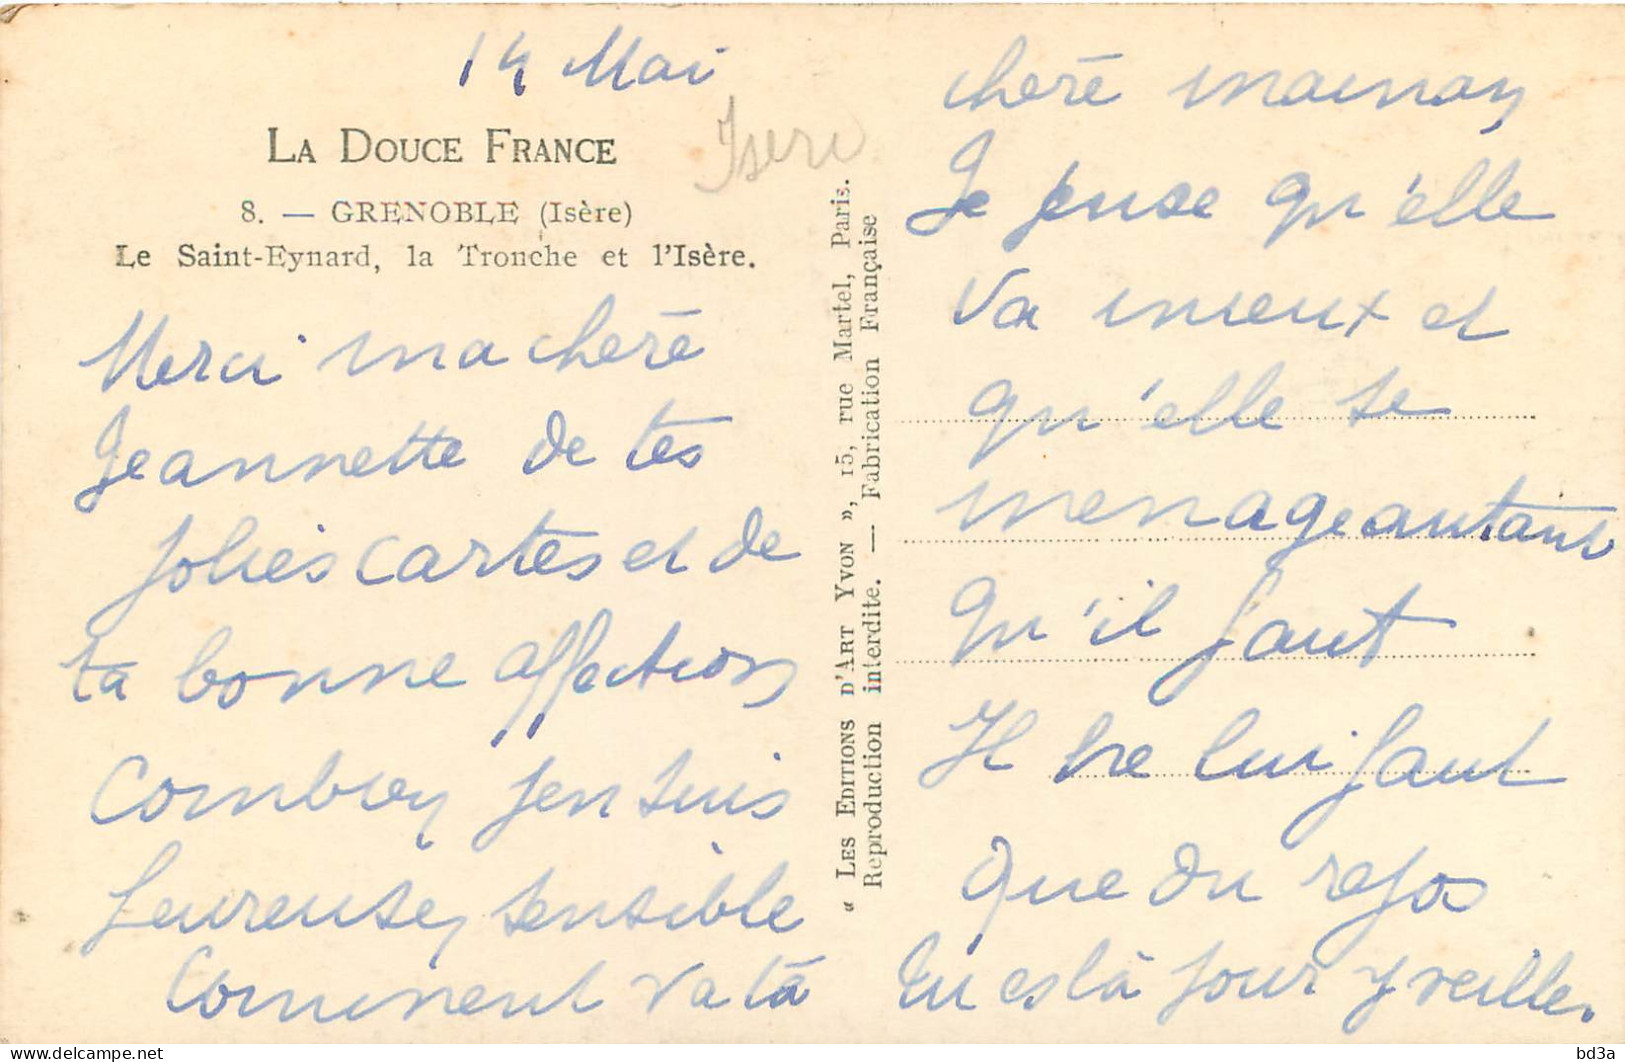 14 Mai
LA DOUCE FRANCE
Isere
8. — GRENOBLE (Isère)
Le Saint-Eynard, la Tronche et l'Isère.
Merci ma chère
Jeannette de tes
jolies cartes et de
ta bonne affection
Combien j'en suis
heureuse, sensible
Comment va ta
« LES EDITIONS D'ART YVON », 15, rue Martel, Paris.
Reproduction interdite. — Fabrication Française
chère maman
Je pense qu'elle
va mieux et
qu'elle se
menage autant
qu'il faut
Il ne lui faut
que du repos
tu es là pour y veiller.
bd3a